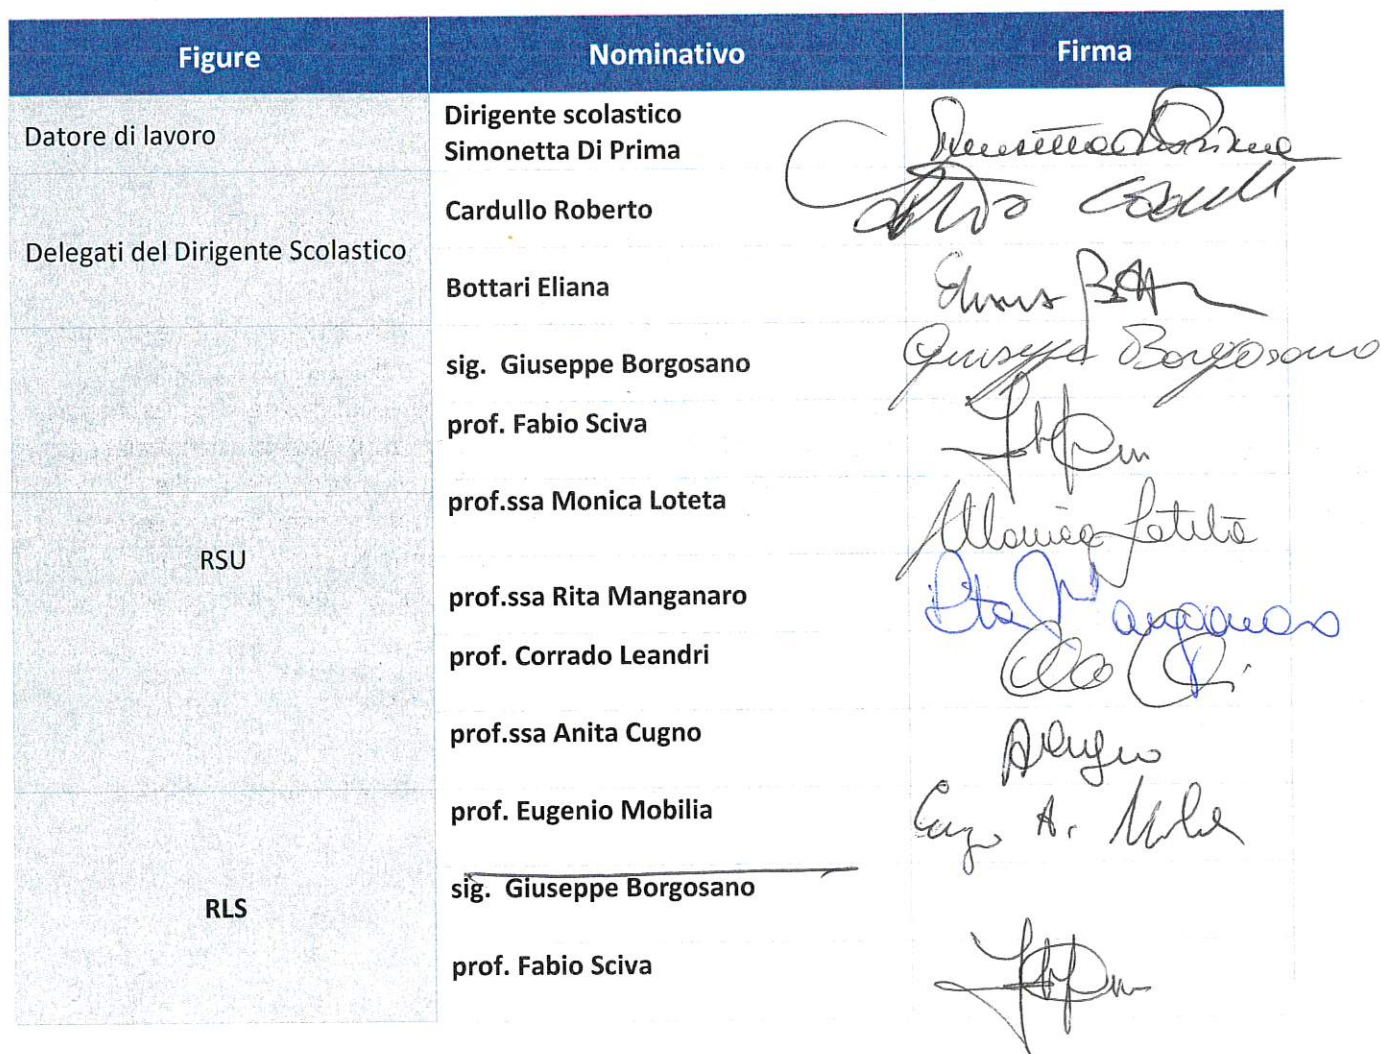 Figure Nominativo Firma
Datore di lavoro
Dirigente scolastico
Simonetta Di Prima
Delegati del Dirigente Scolastico
Cardullo Roberto
Bottari Eliana
sig. Giuseppe Borgosano Giuseppe Borgosano
prof. Fabio Sciva
RSU
prof.ssa Monica Loteta
prof.ssa Rita Manganaro Rita Manganaro
prof. Corrado Leandri
prof.ssa Anita Cugno ACugno
prof. Eugenio Mobilia
RLS
sig. Giuseppe Borgosano
prof. Fabio Sciva